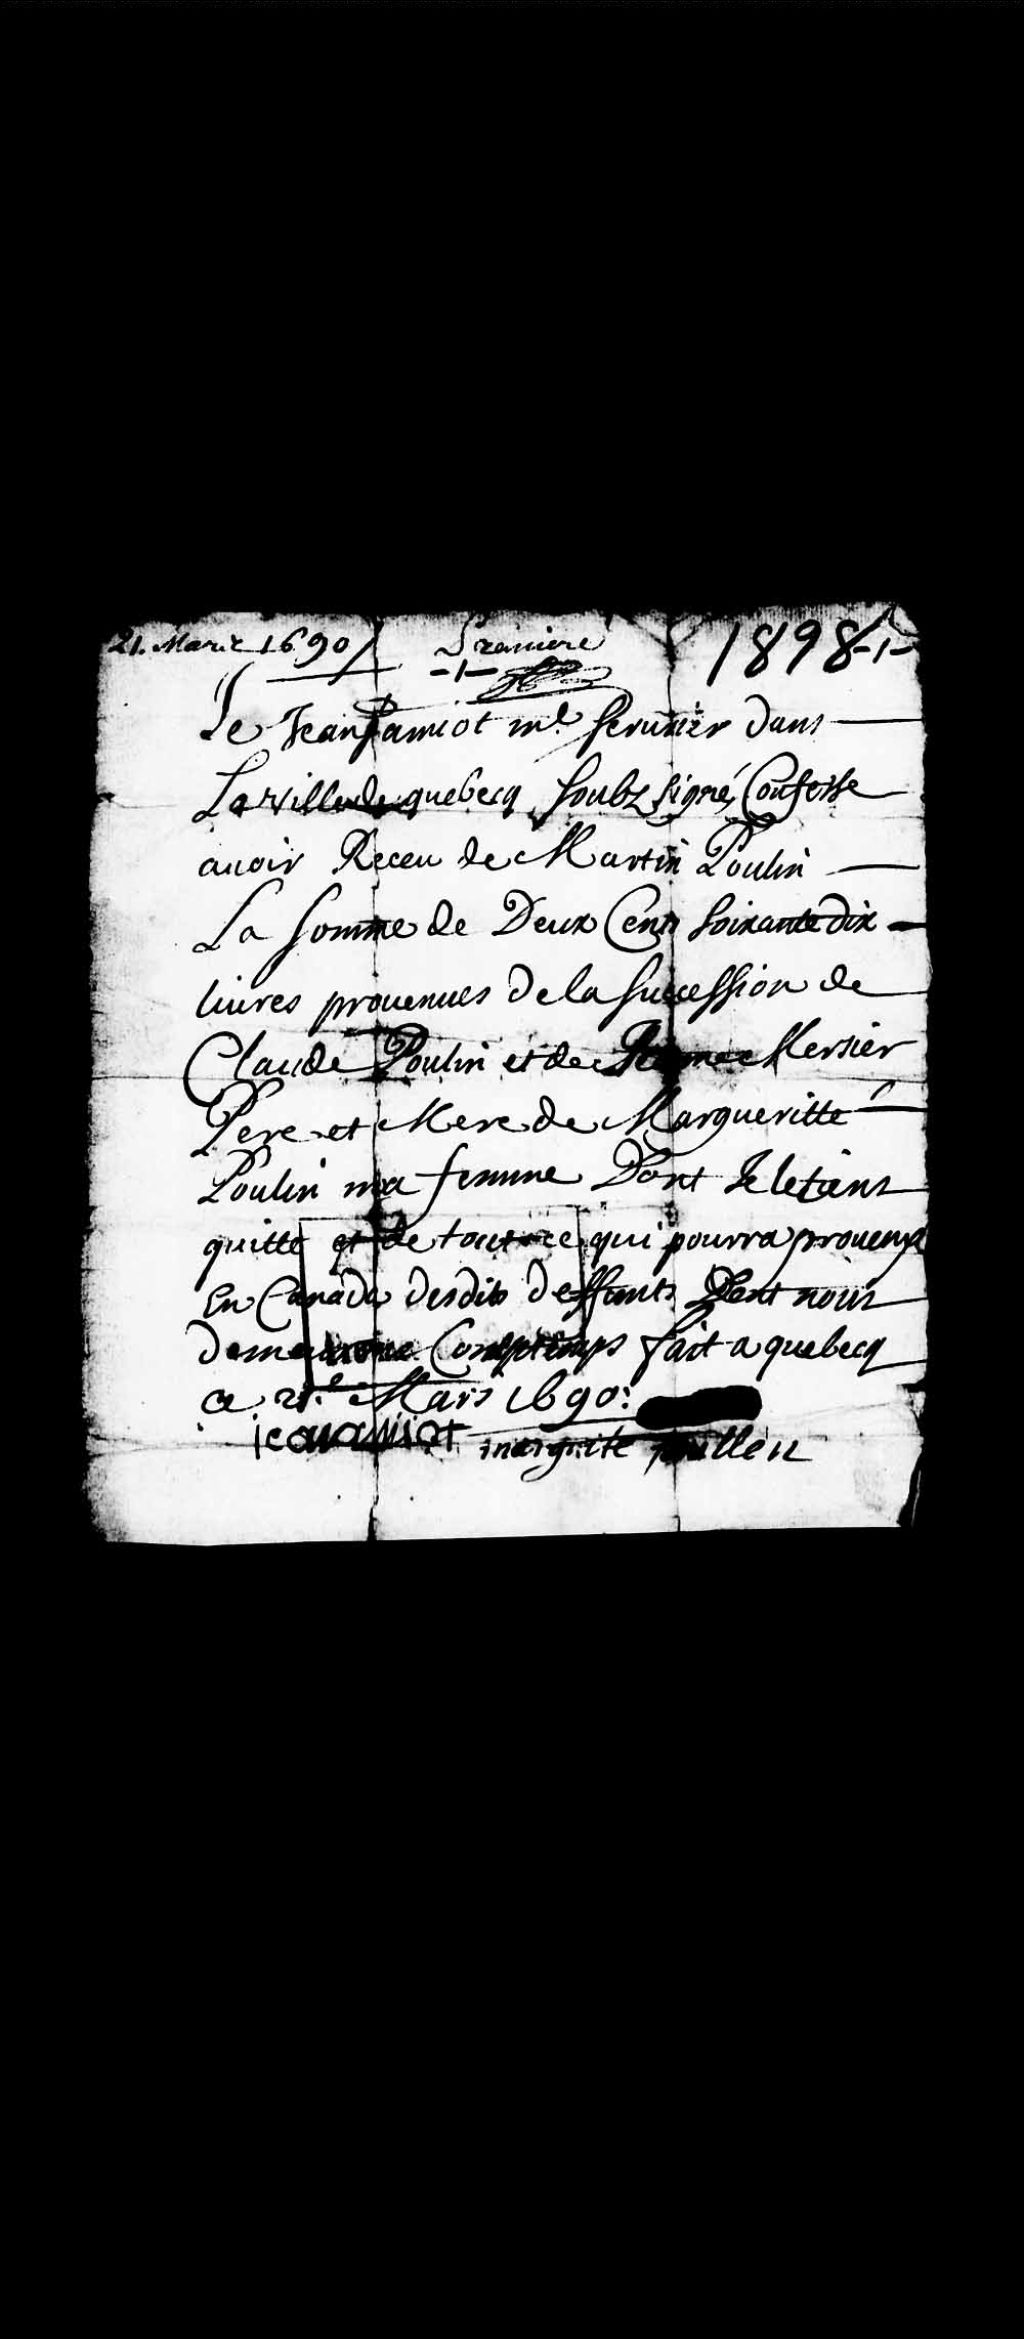 21. Mars 1690 Premiere 1898-1-
-1-
Je Jean amiot me. Serurier dans
La ville de quebecq soubz signé, Confesse
auoir Receu de Martin Poulin
La Somme de Deux Cens soixante dix
liures prouenues de la succession de
Claude Poulin et de Mersier
Pere et Mere de Margueritte
Poulin ma femme Dont Je le tiens
quitte et de tout ce qui pourra prouenir
En Canada desdits deffunts Dont nous
Fait a quebecq
ce 21.e Mars 1690:
jean amiot margrite poullen